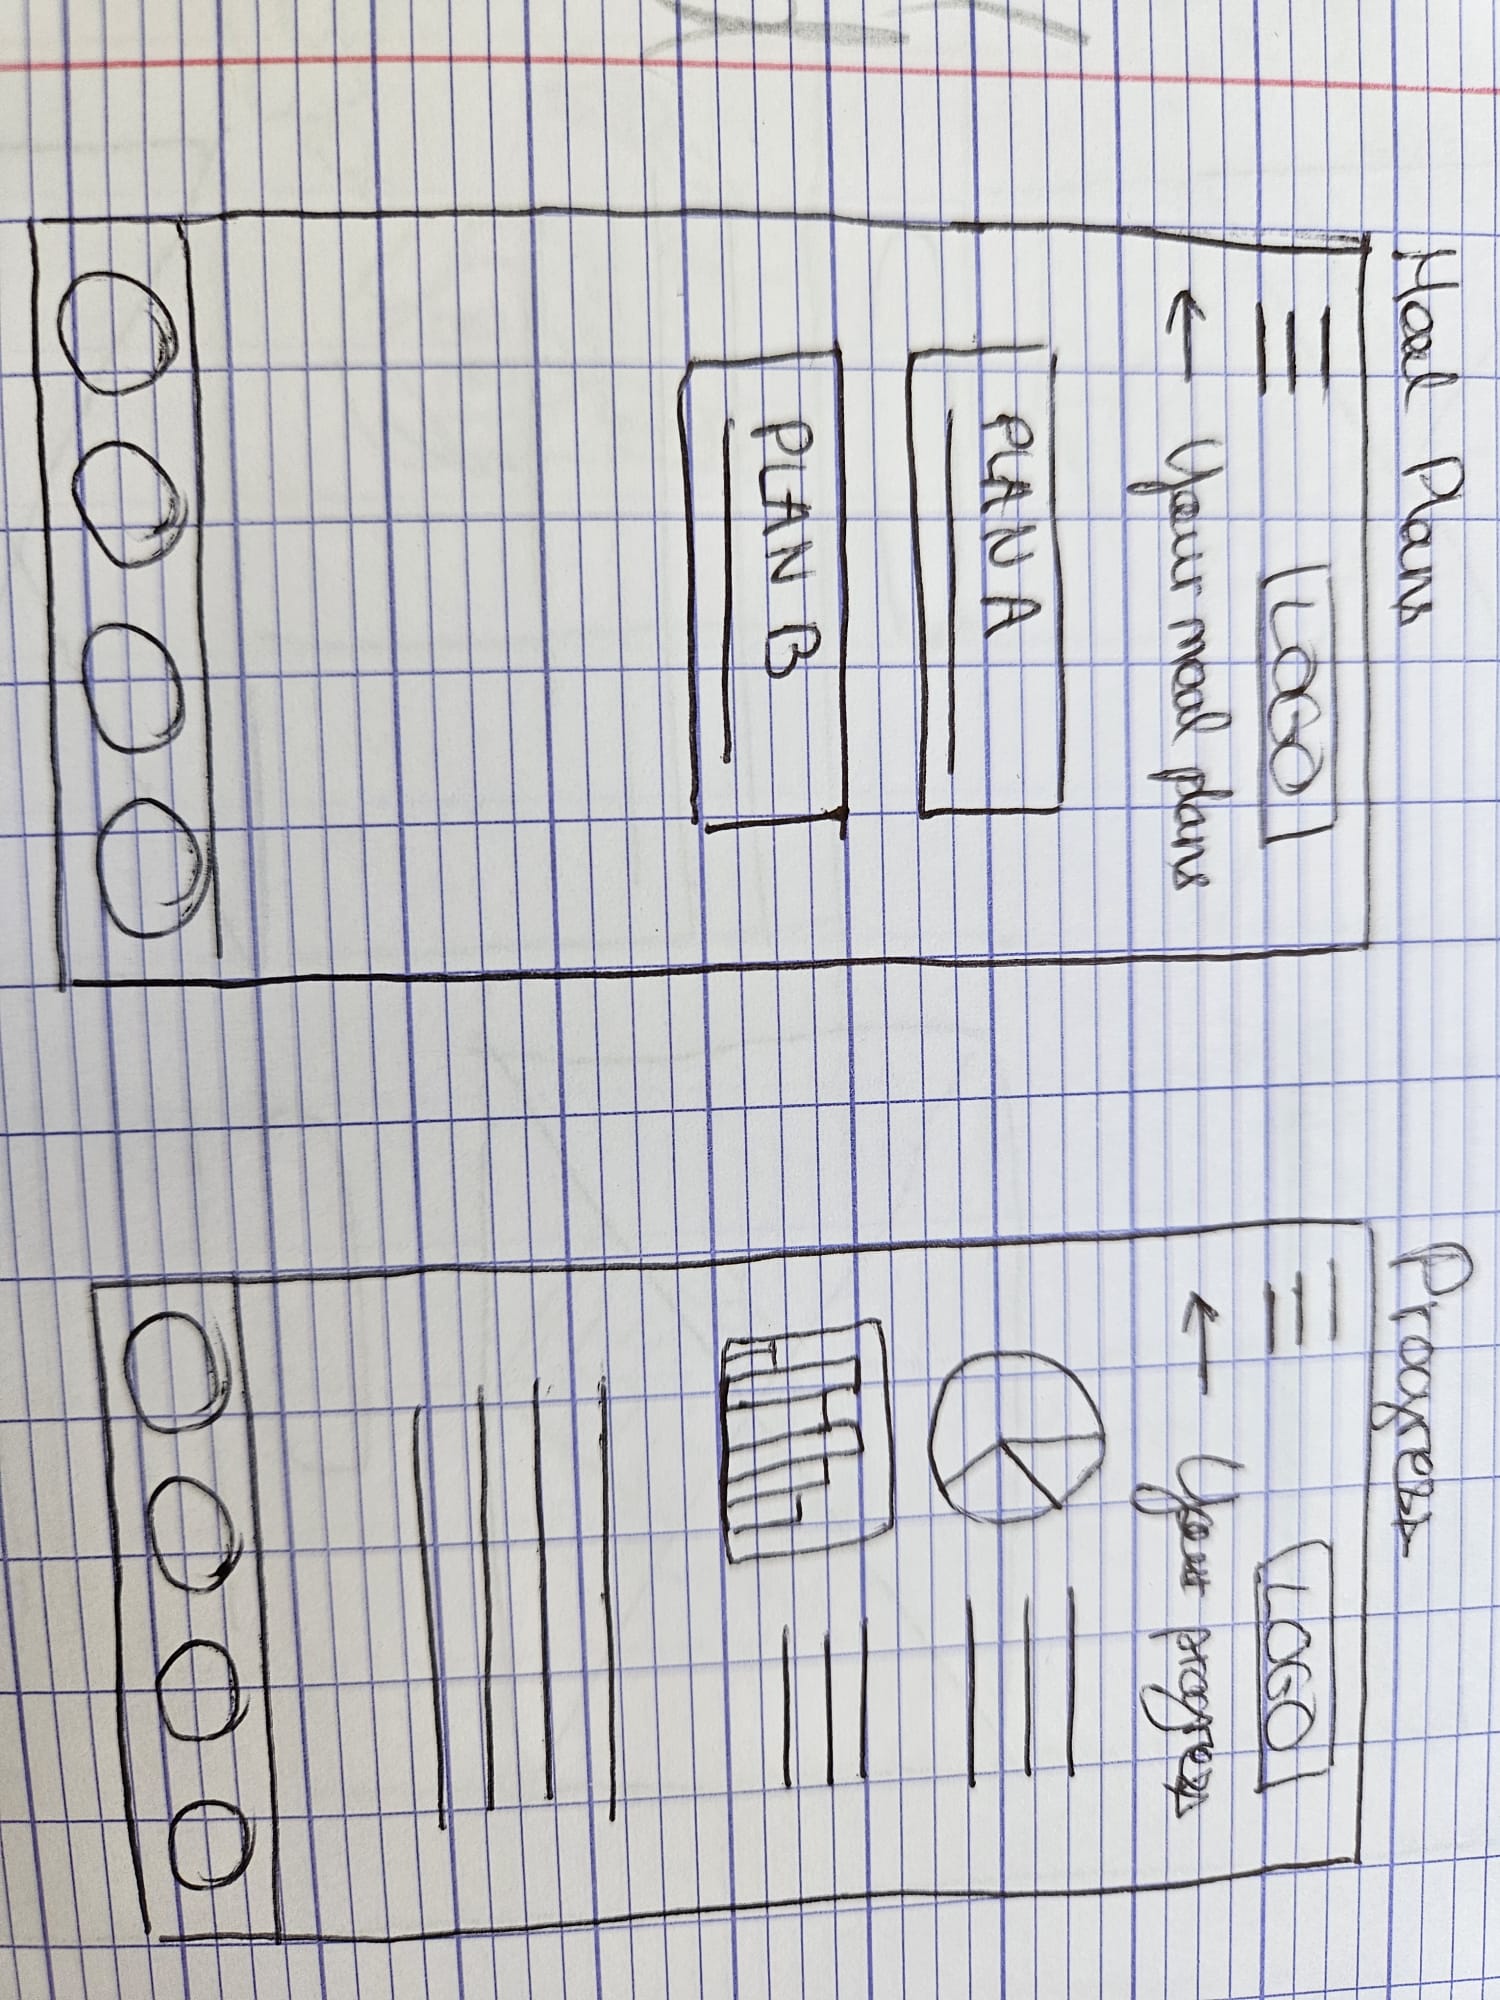 Meal Plans
LOGO
Your meal plans
PLAN A
PLAN B
Progress
LOGO
Your progress